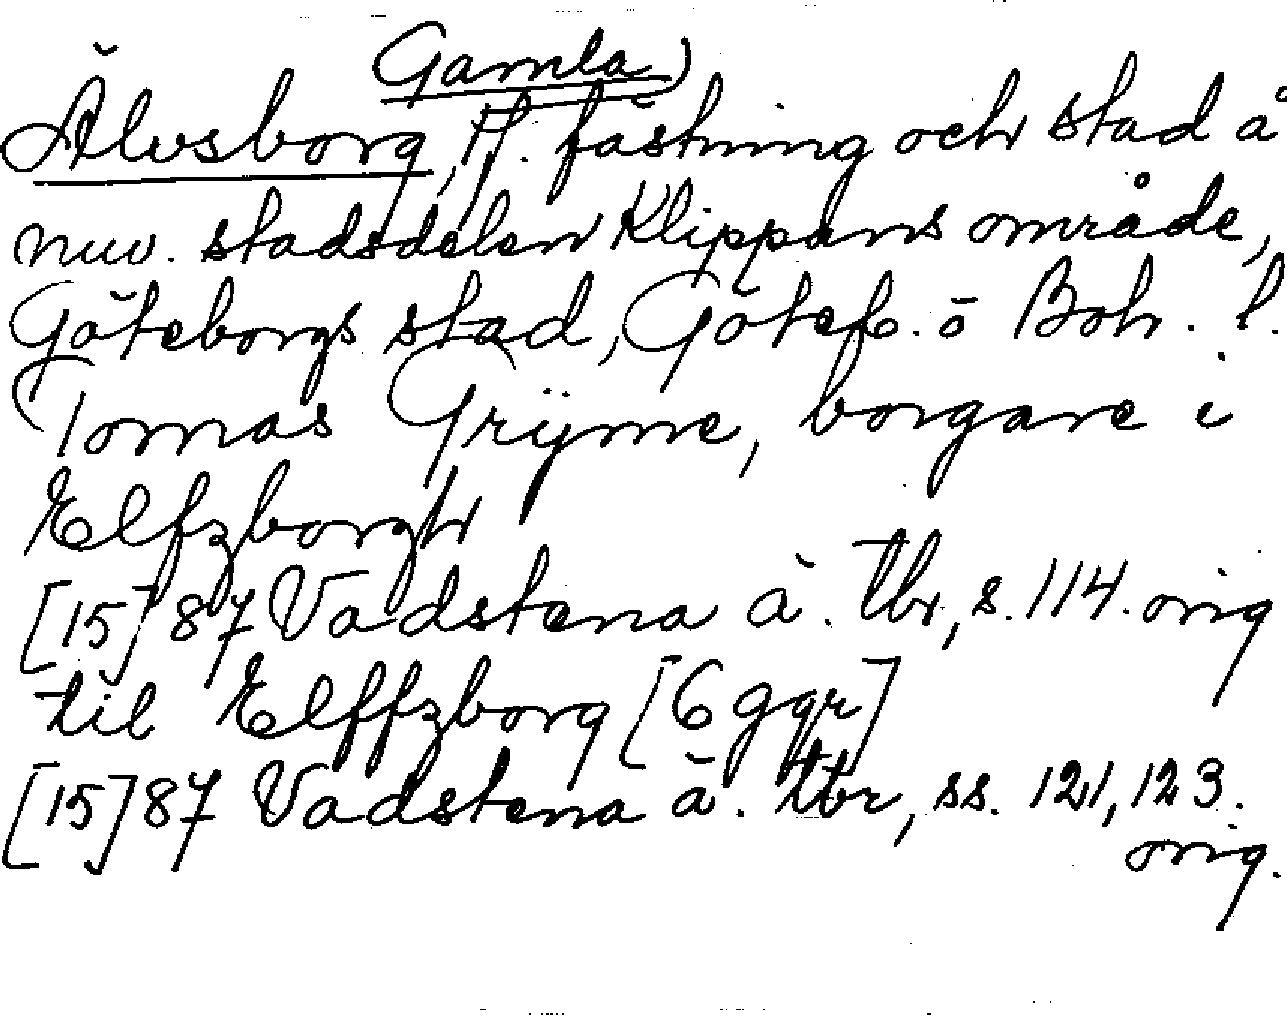 Gamla)
Älvsborg, f. fästning och stad å
nuv. stadsdelen Klippans område,
Göteborgs stad, Göteb. o Boh. l.
Tomas Grÿme, borgare i
Elfzborgh
[15]87 Vadstena ä. tbr, s. 114. orig
til Elffzborg [6 ggr]
[15]87 Vadstena ä. tbr, ss. 121, 123.
orig.